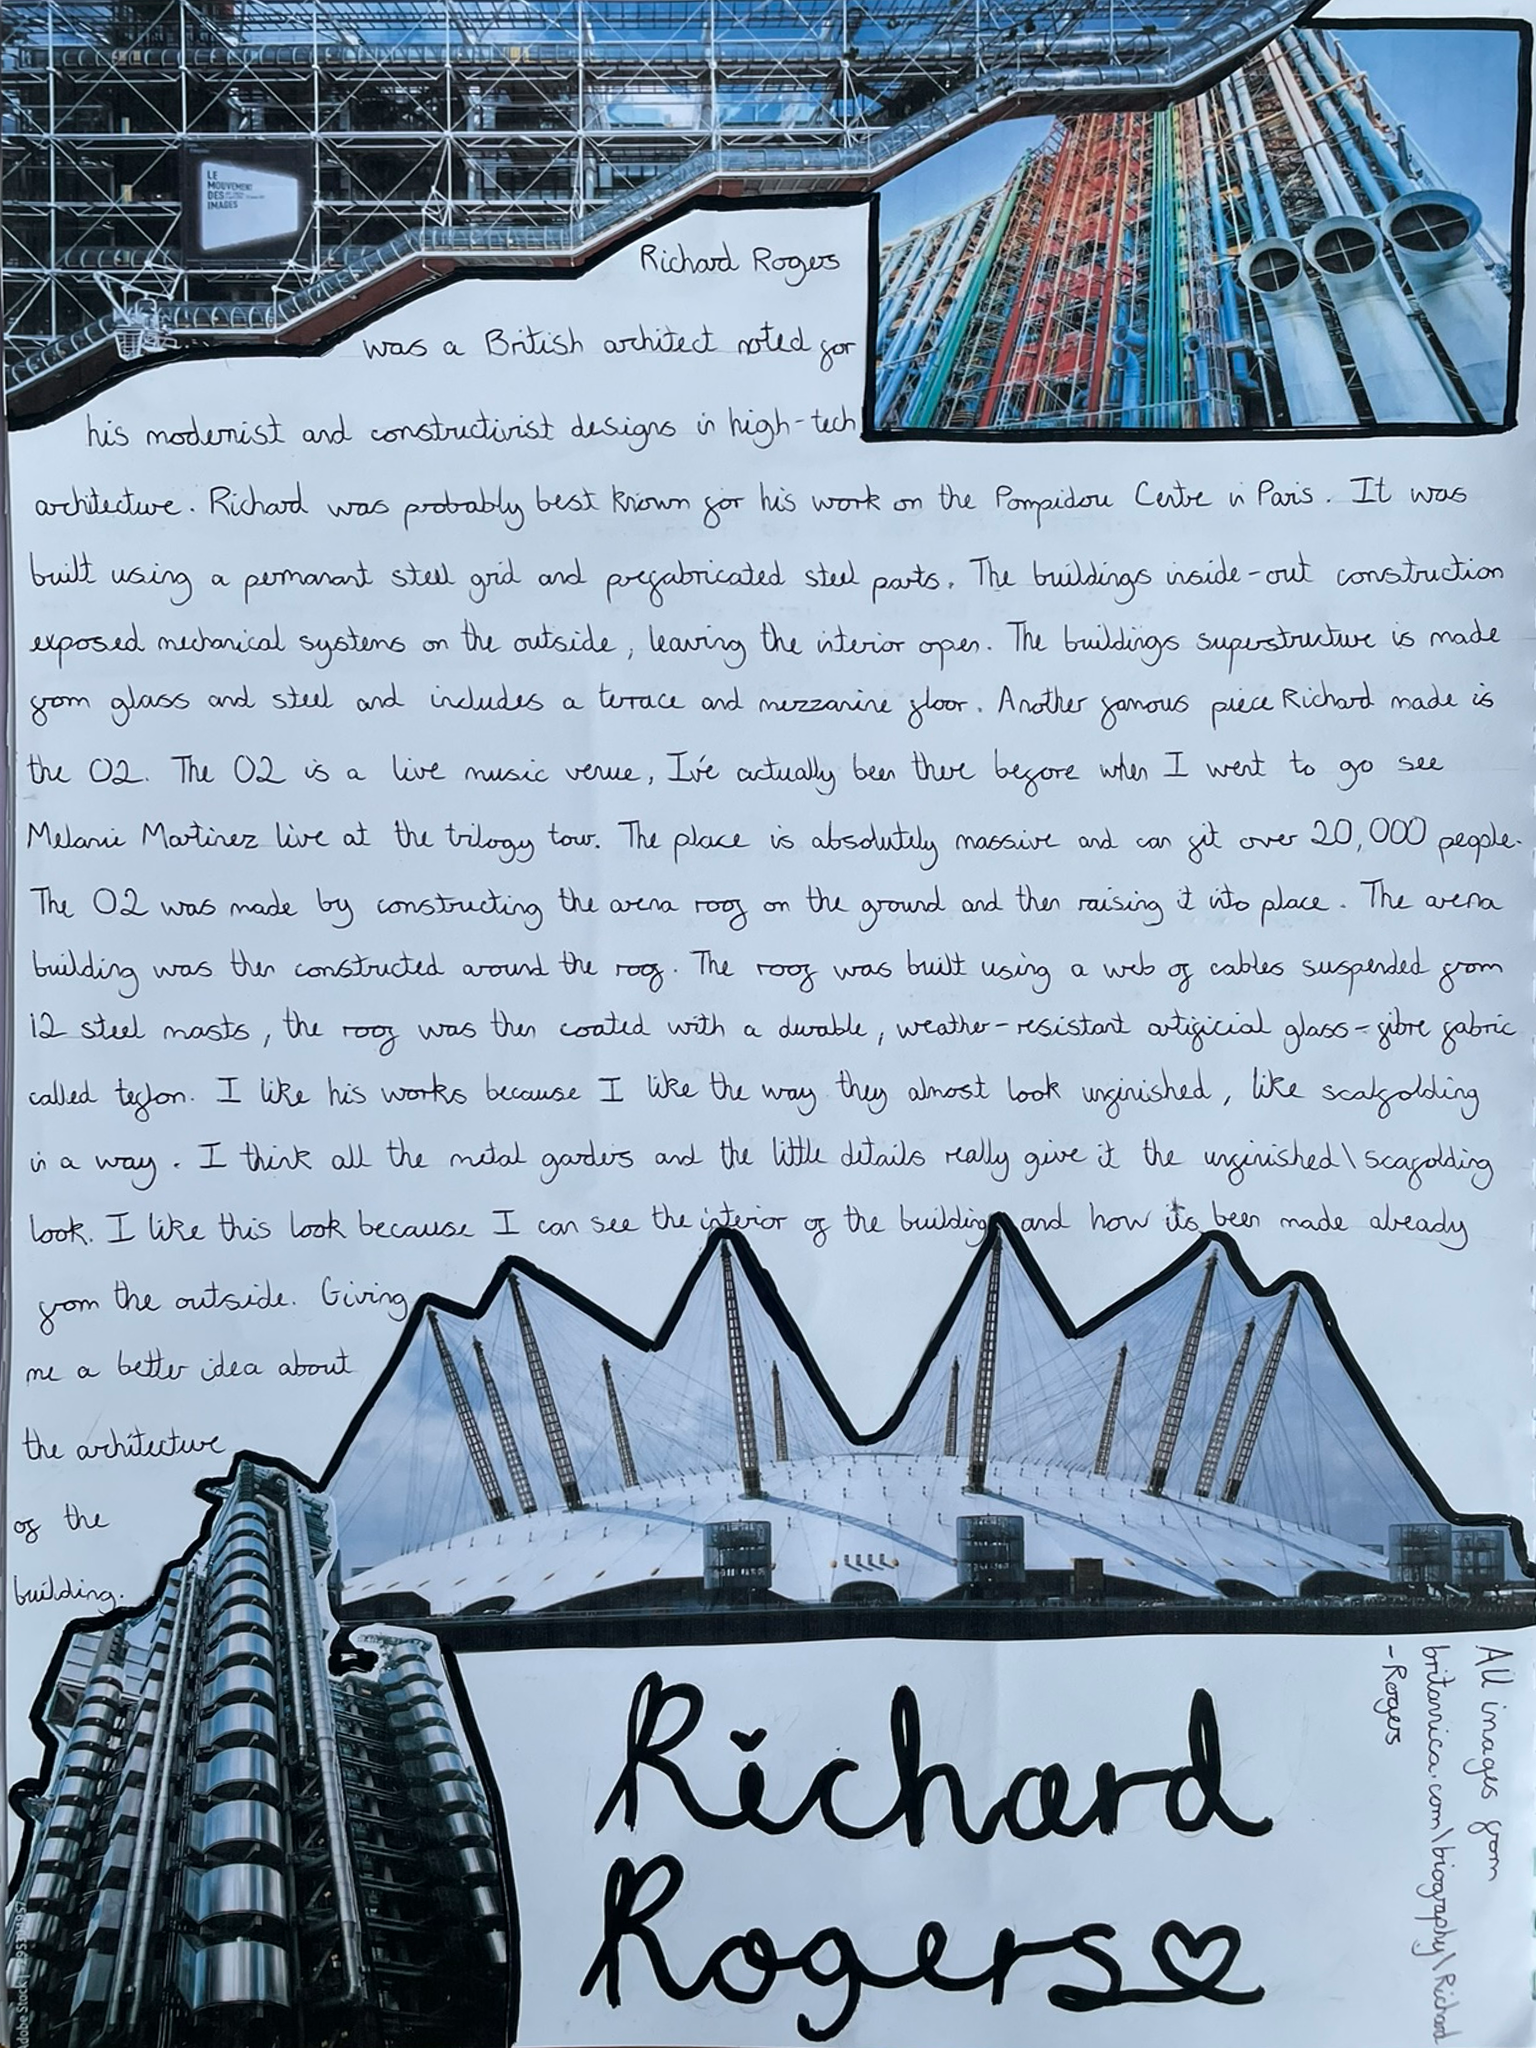 LE
MOUVEMENT
DES
IMAGES
Richard Rogers
was a British architect noted for
his modernist and constructivist designs in high-tech
architecture. Richard was probably best known for his work on the Pompidou Centre in Paris. It was
built using a permanant steel grid and prefabricated steel parts. The buildings inside-out construction
exposed mechanical systems on the outside, leaving the interior open. The buildings superstructure is made
from glass and steel and includes a terrace and mezzanine floor. Another famous piece Richard made is
the O2. The O2 is a live music venue, I've actually been there before when I went to go see
Melanie Martinez live at the trilogy tour. The place is absolutely massive and can fit over 20,000 people.
The O2 was made by constructing the arena roof on the ground and then raising it into place. The arena
building was then constructed around the roof. The roof was built using a web of cables suspended from
12 steel masts, the roof was then coated with a durable, weather-resistant artificial glass-fibre fabric
called teflon. I like his works because I like the way they almost look unfinished, like scaffolding
in a way. I think all the metal garders and the little details really give it the unfinished\scaffolding
look. I like this look because I can see the interior of the building and how its been made already
from the outside. Giving
me a better idea about
the architecture
of the
building.
Richard
Rogers
All images from
britannica.com\biography\Richard
-Rogers
Adobe Stock |